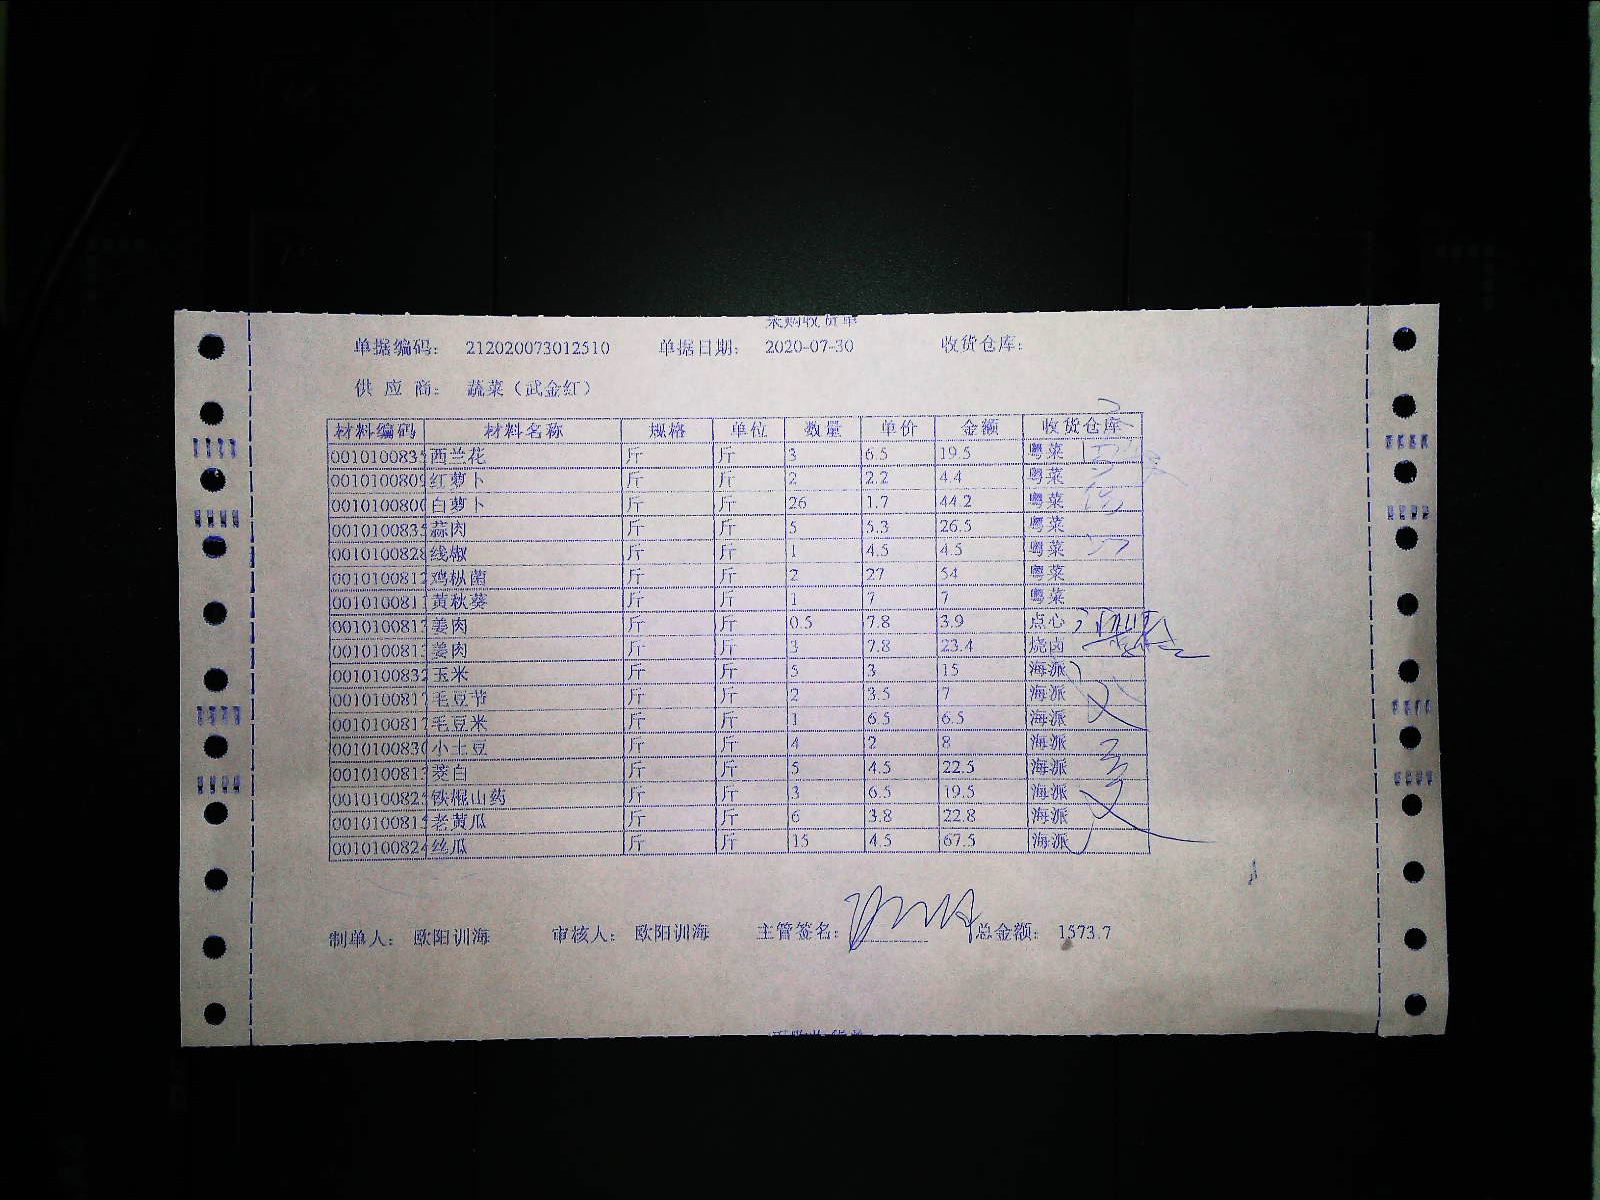 采购收货单
单据编码： 212020073012510 单据日期： 2020-07-30 收货仓库：
供 应 商： 蔬菜（武金红）
材料编码 材料名称 规格 单位 数量 单价 金额 收货仓库
0010100835 西兰花 斤 斤 3 6.5 19.5 粤菜
0010100809 红萝卜 斤 斤 2 2.2 4.4 粤菜
0010100800 白萝卜 斤 斤 26 1.7 44.2 粤菜
0010100835 蒜肉 斤 斤 5 5.3 26.5 粤菜
0010100828 线椒 斤 斤 1 4.5 4.5 粤菜
0010100812 鸡枞菌 斤 斤 2 27 54 粤菜
001010081 黄秋葵 斤 斤 1 7 7 粤菜
001010081 姜肉 斤 斤 0.5 7.8 3.9 点心
001010081 姜肉 斤 斤 3 7.8 23.4 烧卤
0010100832 玉米 斤 斤 5 3 15 海派
001010081 毛豆节 斤 斤 2 3.5 7 海派
001010081 毛豆米 斤 斤 1 6.5 6.5 海派
0010100830 小土豆 斤 斤 4 2 8 海派
001010081 茭白 斤 斤 5 4.5 22.5 海派
001010082 铁棍山药 斤 斤 3 6.5 19.5 海派
001010081 老黄瓜 斤 斤 6 3.8 22.8 海派
0010100824 丝瓜 斤 斤 15 4.5 67.5 海派
制单人： 欧阳训海 审核人： 欧阳训海 主管签名： 总金额： 1573.7